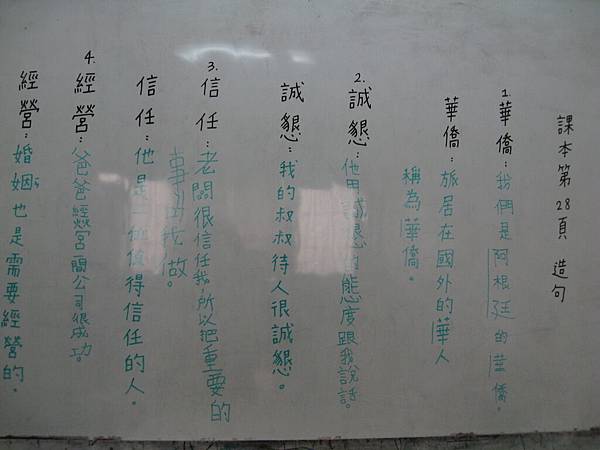 課本第28頁 造句
1.華僑:我們是阿根廷的華僑。
華僑:旅居在國外的華人
稱為華僑。
2.誠懇:他用誠懇的態度跟我說話。
誠懇:我的叔叔待人很誠懇。
3.信任:老闆很信任我,所以把重要的
事
我做。
信任:他是一個值得信任的人。
4.經營:爸爸經營一間公司很成功。
經營:婚姻也是需要經營的。